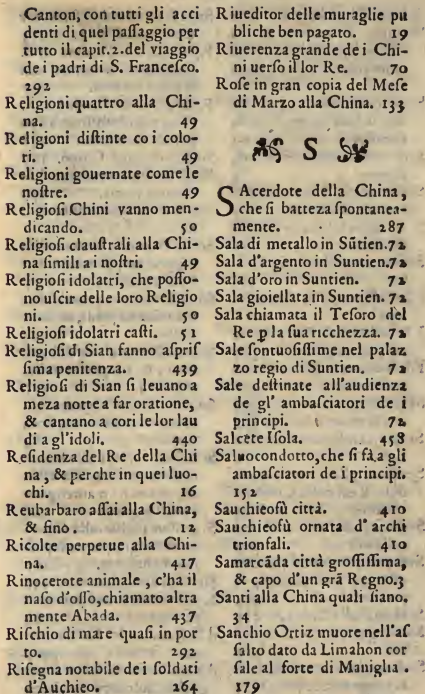 Canton, con tutti gli acci
denti di quel paſſaggio per
tutto il capit. 2. del viaggio
de i padri di S. Franceſco.
292
Religioni quattro alla Chi-
na. 49
Religioni diſtinte co i colo-
ri. 49
Religioni gouernate come le
noſtre. 49
Religioſi Chini vanno men-
dicando. 50
Religioſi clauſtrali alla Chi-
na ſimili a i noſtri. 49
Religioſi idolatri, che poſſo-
no uſcir delle loro Religio
ni. 50
Religioſi idolatri caſti. 51
Religioſi di Sian fanno aſpriſ
ſima penitenza. 439
Religioſi di Sian ſi leuano a
meza notte a far oratione,
& cantano a cori le lor lau
di a gl'idoli. 440
Reſidenza del Re della Chi
na, & perche in quei luo-
chi. 16
Reubarbaro aſſai alla China,
& fino. 12
Ricolte perpetue alla Chi-
na. 417
Rinocerote animale, c'ha il
naſo d'oſſo, chiamato altra
mente Abada. 437
Riſchio di mare quaſi in por
to. 292
Riſegna notabile de i ſoldati
d'Auchieo. 264
Riueditor delle muraglie pu
bliche ben pagato. 19
Riuerenza grande de i Chi-
ni uerſo il lor Re. 70
Roſe in gran copia del Meſe
di Marzo alla China. 133
S
SAcerdote della China,
che ſi batteza ſpontanea-
mente. 287
Sala di metallo in Sūtien. 72
Sala d'argento in Suntien. 72
Sala d'oro in Suntien. 72
Sala gioiellata in Suntien. 72
Sala chiamata il Teſoro del
Re p la ſua ricchezza. 72
Sale ſontuoſiſſime nel palaz
zo regio di Suntien. 72
Sale deſtinate all'audienza
de gl' ambaſciatori de i
principi. 72
Salcete Iſola. 458
Saluocondotto, che ſi fà a gli
ambaſciatori de i principi.
152
Sauchieofù città. 410
Sauchieofù ornata d' archi
trionfali. 410
Samarcāda città groſſiſſima,
& capo d'un grā Regno. 3
Santi alla China quali ſiano.
34
Sanchio Ortiz muore nell'aſ
ſalto dato da Limahon cor
ſale al forte di Maniglia.
179